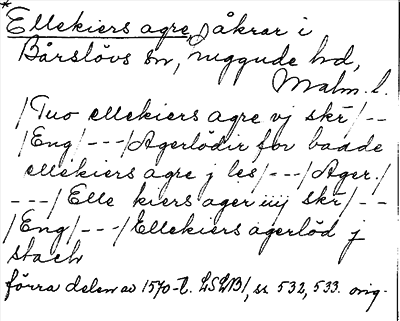 *
Ellekiers agre, åkrar i
Bårslövs sn, Luggude hd,
Malm. l.
/Tuo ellekiers agre vj skr/--
/Eng/---/Agerlödir for badde
ellekiers agre j les/---/Ager./
---/Elle kiers ager iiij skr/--
/Eng/---/Ellekiers agerlöd j
stach
förra delen av 1570-t. LSLB1, ss 532, 533. orig.